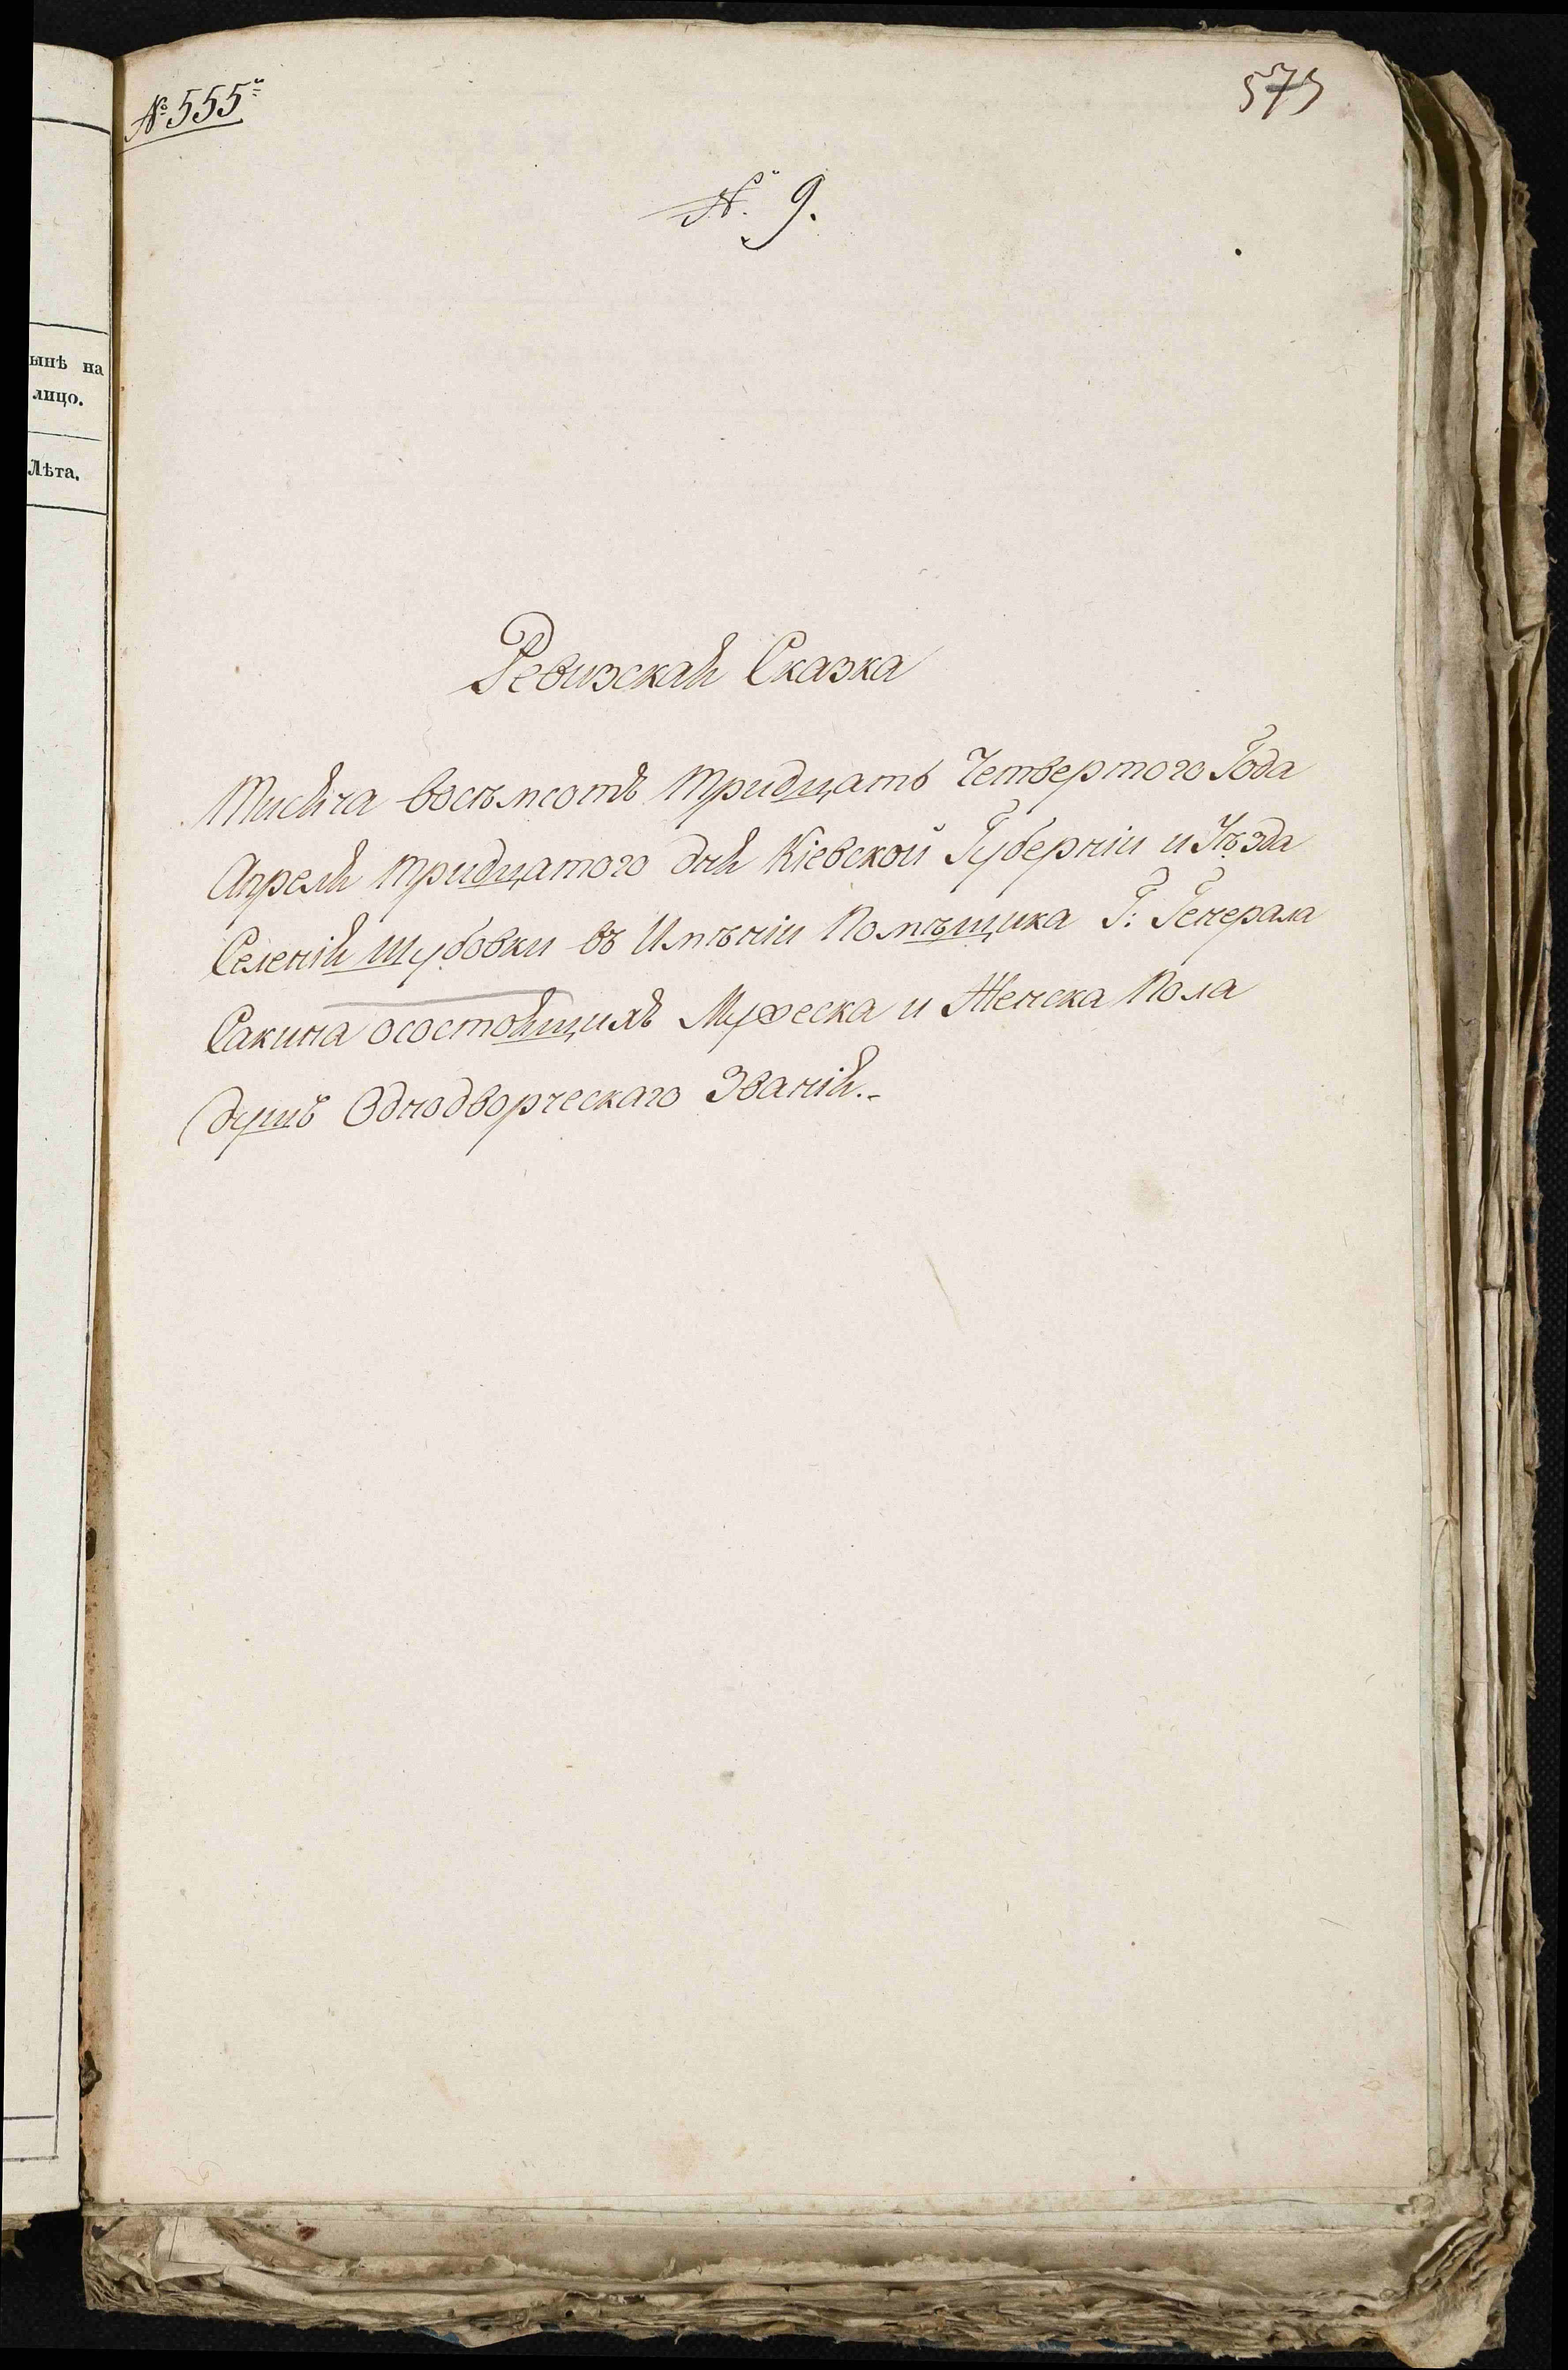 № 555й
575
№ 9.
ынѣ на
лицо.
Лѣта.
Ревизская Сказка
Тисяча восѣмсотъ тридцать Четвертого Года
Апреля тридцатого дня Кіевской Губерніи и Уѣзда
Селенія Шубовки въ Имѣніи Помѣщика Г: Генерала
Сакина осостоящихъ Мужеска и Женска Пола
душъ Однодворческаго Званія.-